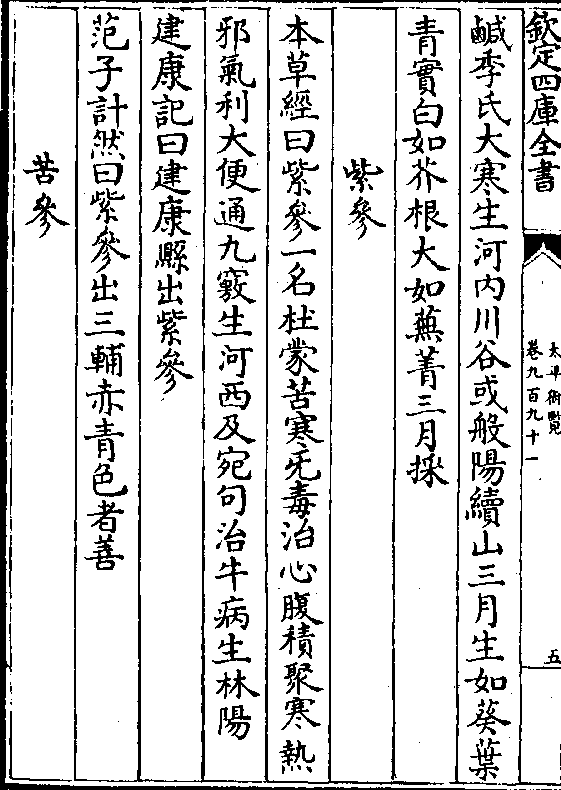 欽定四庫全書
太平御覽
卷九百九十一
五
鹹季氏大寒生河内川谷或般陽續山三月生如葵葉
青實白如芥根大如蕪菁三月採
紫參
本草經曰紫參一名牡蒙苦寒无毒治心腹積聚寒熱
邪氣利大便通九竅生河西及宛句治牛病生林陽
建康記曰建康縣出紫參
范子計然曰紫參出三輔赤青色者善
苦參